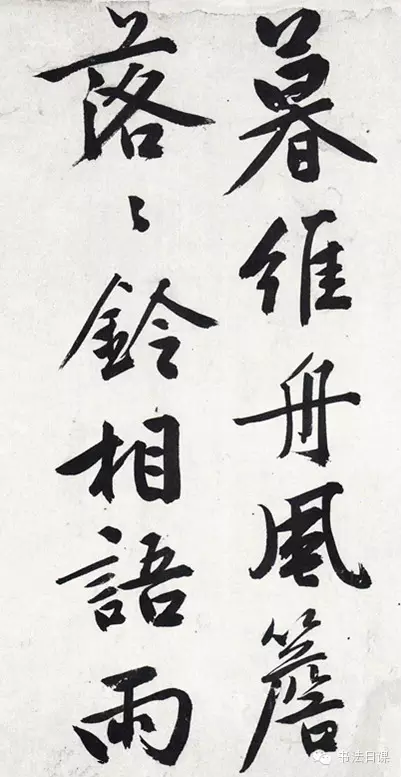 暮维舟風簷
落〻鈴相語雨
书法日课